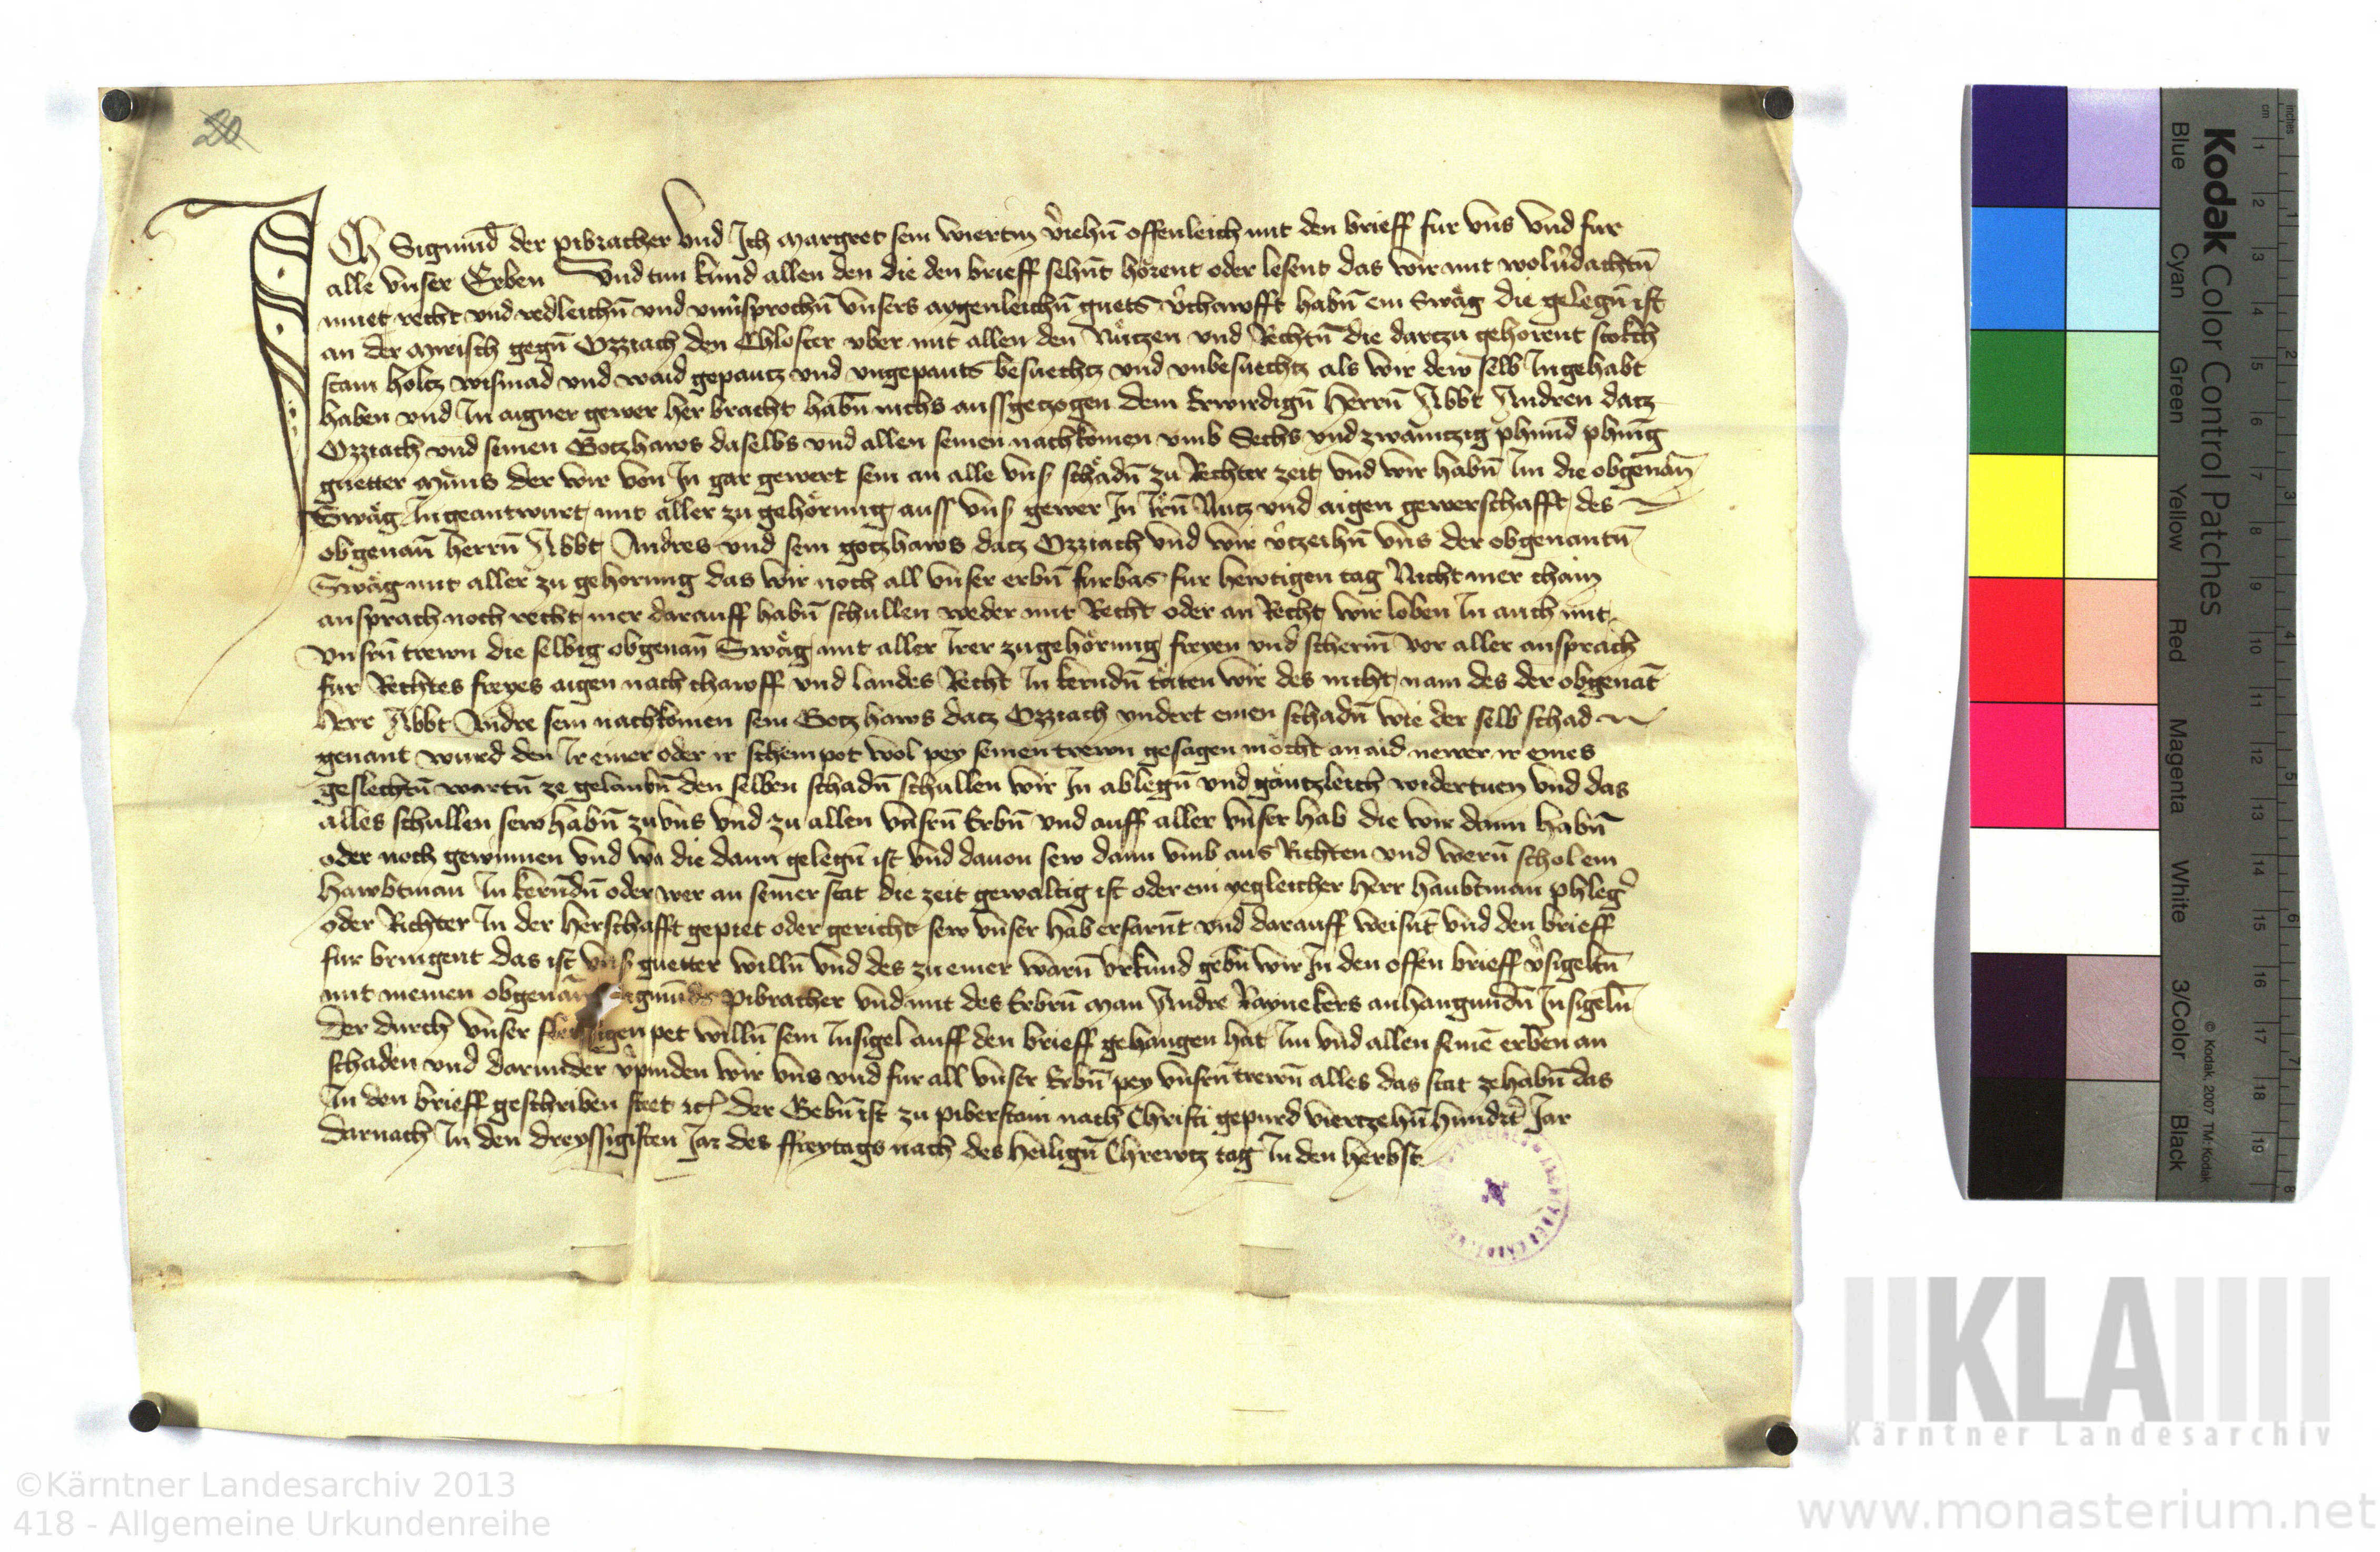 20
ICh Sigmund der pibracher vnd Ich margret sein wiertin v̾iehn̄ offenleich mit den brieff fur vns vnd fur
alle vnser Erben vnd tun kund allen den die den brieff sehn̄t hörent oder lesent das wir mit wolv̾dachtn̄
muet recht vnd redleichn̄ vnd vnuersprochn̄ vnsers aygenleichn̄ guets v̾chawfft habn̄ ein Swäg die gelegn̄ ist
an der Myrisch gegn̄ Ozziach den Chloster vber mit allen den Nützen vnd Rechtn̄ die dartzu gehorent stokch
stain holtz wismad vnd waid gepautz vnd vngepauts besuechtz vnd vnbesuechtz als wir dew selb Inngehabt
haben vnd In aigner gewer her bracht habn̄ nichs aussgetzogen dem Erwirdign̄ Herrn̄ Abbt Andren datz
Ozziach vnd seinen Gotzhaws daselbs vnd allen seinen nachkomen vmb Sechs vnd zwaintzig phund phnīg
guetter Müns der wir von In gar gewert sein an alle vns̄ schädn̄ zu Rechter zeit vnd wir habn̄ Im die obgenan̄
Swäg Ingeantwurt mit aller zu gehörung auss vns̄ gewer In Irn̄ Nutz vnd aigen gewerschafft des
obgenan̄ herrn̄ Abbt Andres vnd sein gotzhaws datz Ozziach vnd wir v̾tzeihn̄ vns der obgenantn̄
Swäg mit aller zu gehorung das wir noch all vnser erbn̄ furbas fur hewtigen tag Nicht mer chain
ansprach noch recht mer darauff habn̄ schullen weder mit Recht oder an Recht wir loben In auch mit
vnsrn̄ trewn die selbig obgenan̄ Swäg mit aller Irer zugehörung freyen vnd scherm̄ vor aller ansprach
fur Rechtes freyes aigen nach chawff vnd landes Recht In kerndn̄ täten wir des nicht nam des der obgenāt
Herr Abbt Andre sein nachkomen sein Gotzhaws datz Ozziach yndert einen schadn̄ wie der selb schad
genant wurd den Ir einer oder ir schein pot wol pey seinen trewn gesagen möcht an aid newer ir eines
geslechtn̄ wartn̄ ze gelaubn̄ den selben schadn̄ schullen wir In ablegn̄ vnd gäntzleich widertuen vnd das
alles schullen sew habn̄ zu vns vnd zu allen vnsrn̄ Erbn̄ vnd auff aller vnser hab die wir dann habn̄
oder noch gewinnen vnd wa die dann gelegn̄ ist vnd dauon sew dann vmb aus Richten vnd wern̄ schol ein
Hawbtman In kerndn̄ oder wer an seiner stat die zeit gewaltig ist oder ein yegleicher Herr haubtman phleg̾
oder Richter In der Herschafft gepiet oder gericht sew vnser hab erfarn̄t vnd darauff weisn̄t vnd den brieff
fur bringent das ist vns̄ guetter willn̄ vnd des zu einer warn̄ vrkund gebn̄ wir In den offen brieff v̾sigeltn̄
mit meinen obgenan̄ Sigmūds pibracher vnd mit des Erbrn̄ man Andre Raynekers anhangundn̄ Insigeln̄
der durch vnser fleissigen pet willn̄ sein Insigel auff den brieff gehangen hat Im vnd allen seinē erben an
schaden vnd darunder v̾pinden wir vns vnd fur all vnser Erbn̄ pey vnsrn̄ trewn̄ alles das stat zehabn̄ das
In den brieff geschriben stet etc̄ Der Gebn̄ ist zu piberstain nach Christi gepurd viertzehn̄hundrt̾ Jar
darnach In den dreyssigisten Jar des ffreytags nach des heilign̄ Chrewtz tag In den herbst
Kodak Color Control Patches
Blue
Cyan
Green
Yellow
Red
Magenta
White
3/Color
Black
© Kodak, 2007 TM: Kodak
cm 1 2 3 4 5 6 7 8 9 10 11 12 13 14 15 16 17 18 19
inches 1 2 3 4 5 6 7 8
KLA
Kärntner Landesarchiv
©Kärntner Landesarchiv 2013
418 - Allgemeine Urkundenreihe
www.monasterium.net